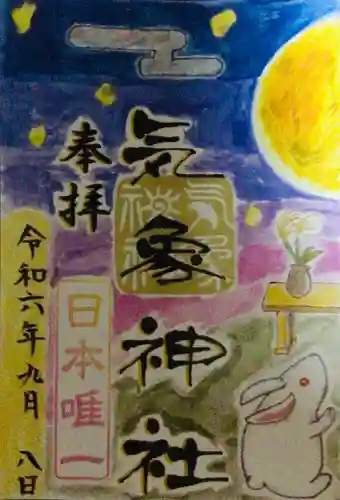 奉拝
気象神社
日本唯一
令和六年九月 八日